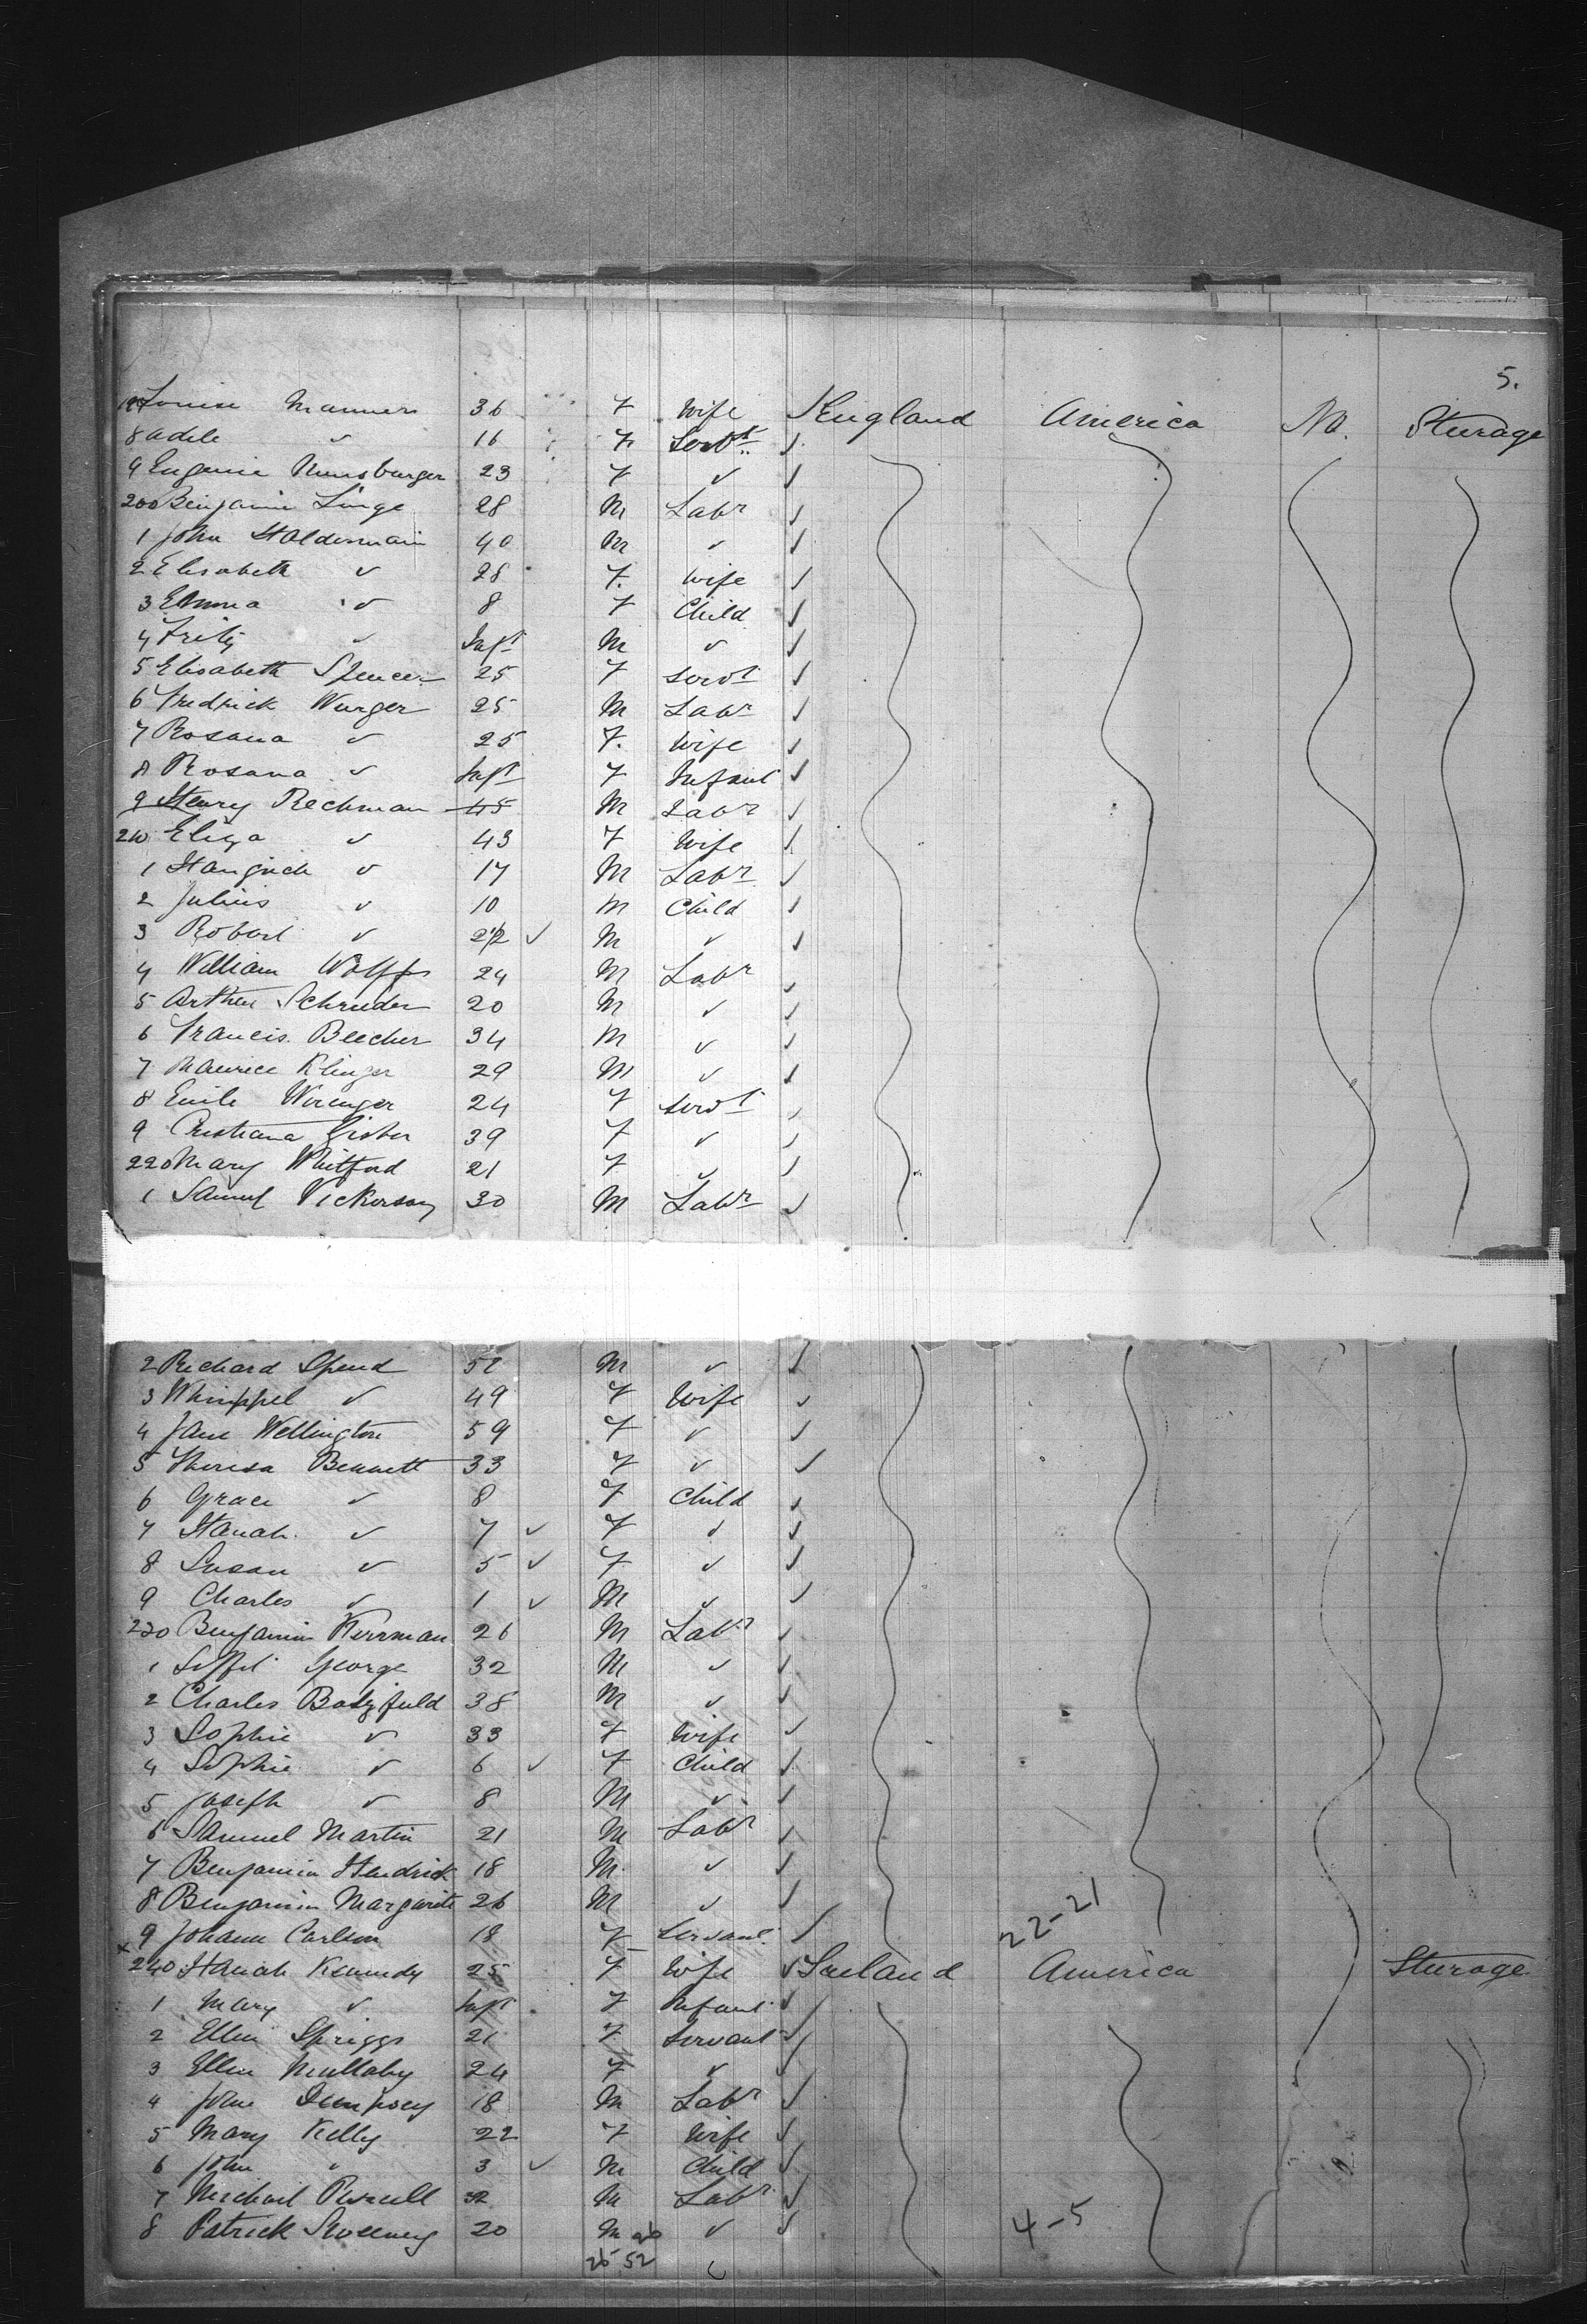 5.
197 Louise Manners 36 F Wife ✓ England America No. Sturage
8 Adele ✓ 16 F Servt. ✓
9 Eugenie Nunsburger 23 F ✓ ✓
200 Benjamin Linge 28 M Labr ✓
1 John Haldermain 40 M ✓ ✓
2 Elisabeth ✓ 28 F. Wife ✓
3 Emma ✓ 8 F Child ✓
4 Fritz ✓ Inft M ✓ ✓
5 Elisabeth Spencer 25 F Servt ✓
6 Fredrick Wurger 25 M Labr ✓
7 Rosana ✓ 25 F. Wife ✓
8 Rosana ✓ Inft F Infant ✓
9 Henry Rechman 45 M Labr ✓
210 Eliza ✓ 43 F Wife ✓
1 ✓ 17 M Labr ✓
2 Julius ✓ 10 M Child ✓
3 Robert ✓ ✓ M ✓ ✓
4 William Wolffs 24 M Labr ✓
5 Arthur Schruder 20 M ✓ ✓
6 Francis Beecher 34 M ✓ ✓
7 Maurice Klinger 29 M ✓ ✓
8 Emile Werenger 24 F Servt ✓
9 Cristiana Gister 39 F ✓ ✓
220 Mary Whitford 21 F ✓ ✓
1 Samuel Vickerson 30 M Labr ✓
2 Richard Spend 52 M ✓ ✓
3 Whimppel ✓ 49 F Wife ✓
4 Jane Wellington 59 F ✓ ✓
5 Theresa Bennett 33 F ✓ ✓
6 Grace ✓ 8 F Child ✓
7 Hanah ✓ 7 ✓ F ✓ ✓
8 Susan ✓ 5 ✓ F ✓ ✓
9 Charles ✓ 1 ✓ M ✓ ✓
230 Benjamin Herrman 26 M Labr ✓
1 George 32 M ✓ ✓
2 Charles Batzfield 38 M ✓ ✓
3 Sophie ✓ 33 F Wife ✓
4 Sophie ✓ 6 ✓ F Child ✓
5 Joseph ✓ 8 M ✓ ✓
6 Samuel Martin 21 M Labr ✓
7 Benjamin Hendrick 18 M. ✓ ✓
8 Benjamin Margarite 26 M ✓ ✓
22-21
x 9 Johann Carlson 18 F Servant ✓
240 Hanah Kennedy 25 F Wife ✓ Ireland America Sturage
1 Mary ✓ Inft F Infant ✓
2 Ellen Spriggs 21 F Servant ✓
3 Ellen Mullaby 24 F ✓ ✓
4 John Dempsey 18 M Labr ✓
5 Mary Kelly 22 F Wife ✓
6 John " 3 ✓ M Child ✓
7 Michail Purcell 32 M Labr ✓
8 Patrick Sweeney 20 M 26 ✓ ✓ 4-5
26 52